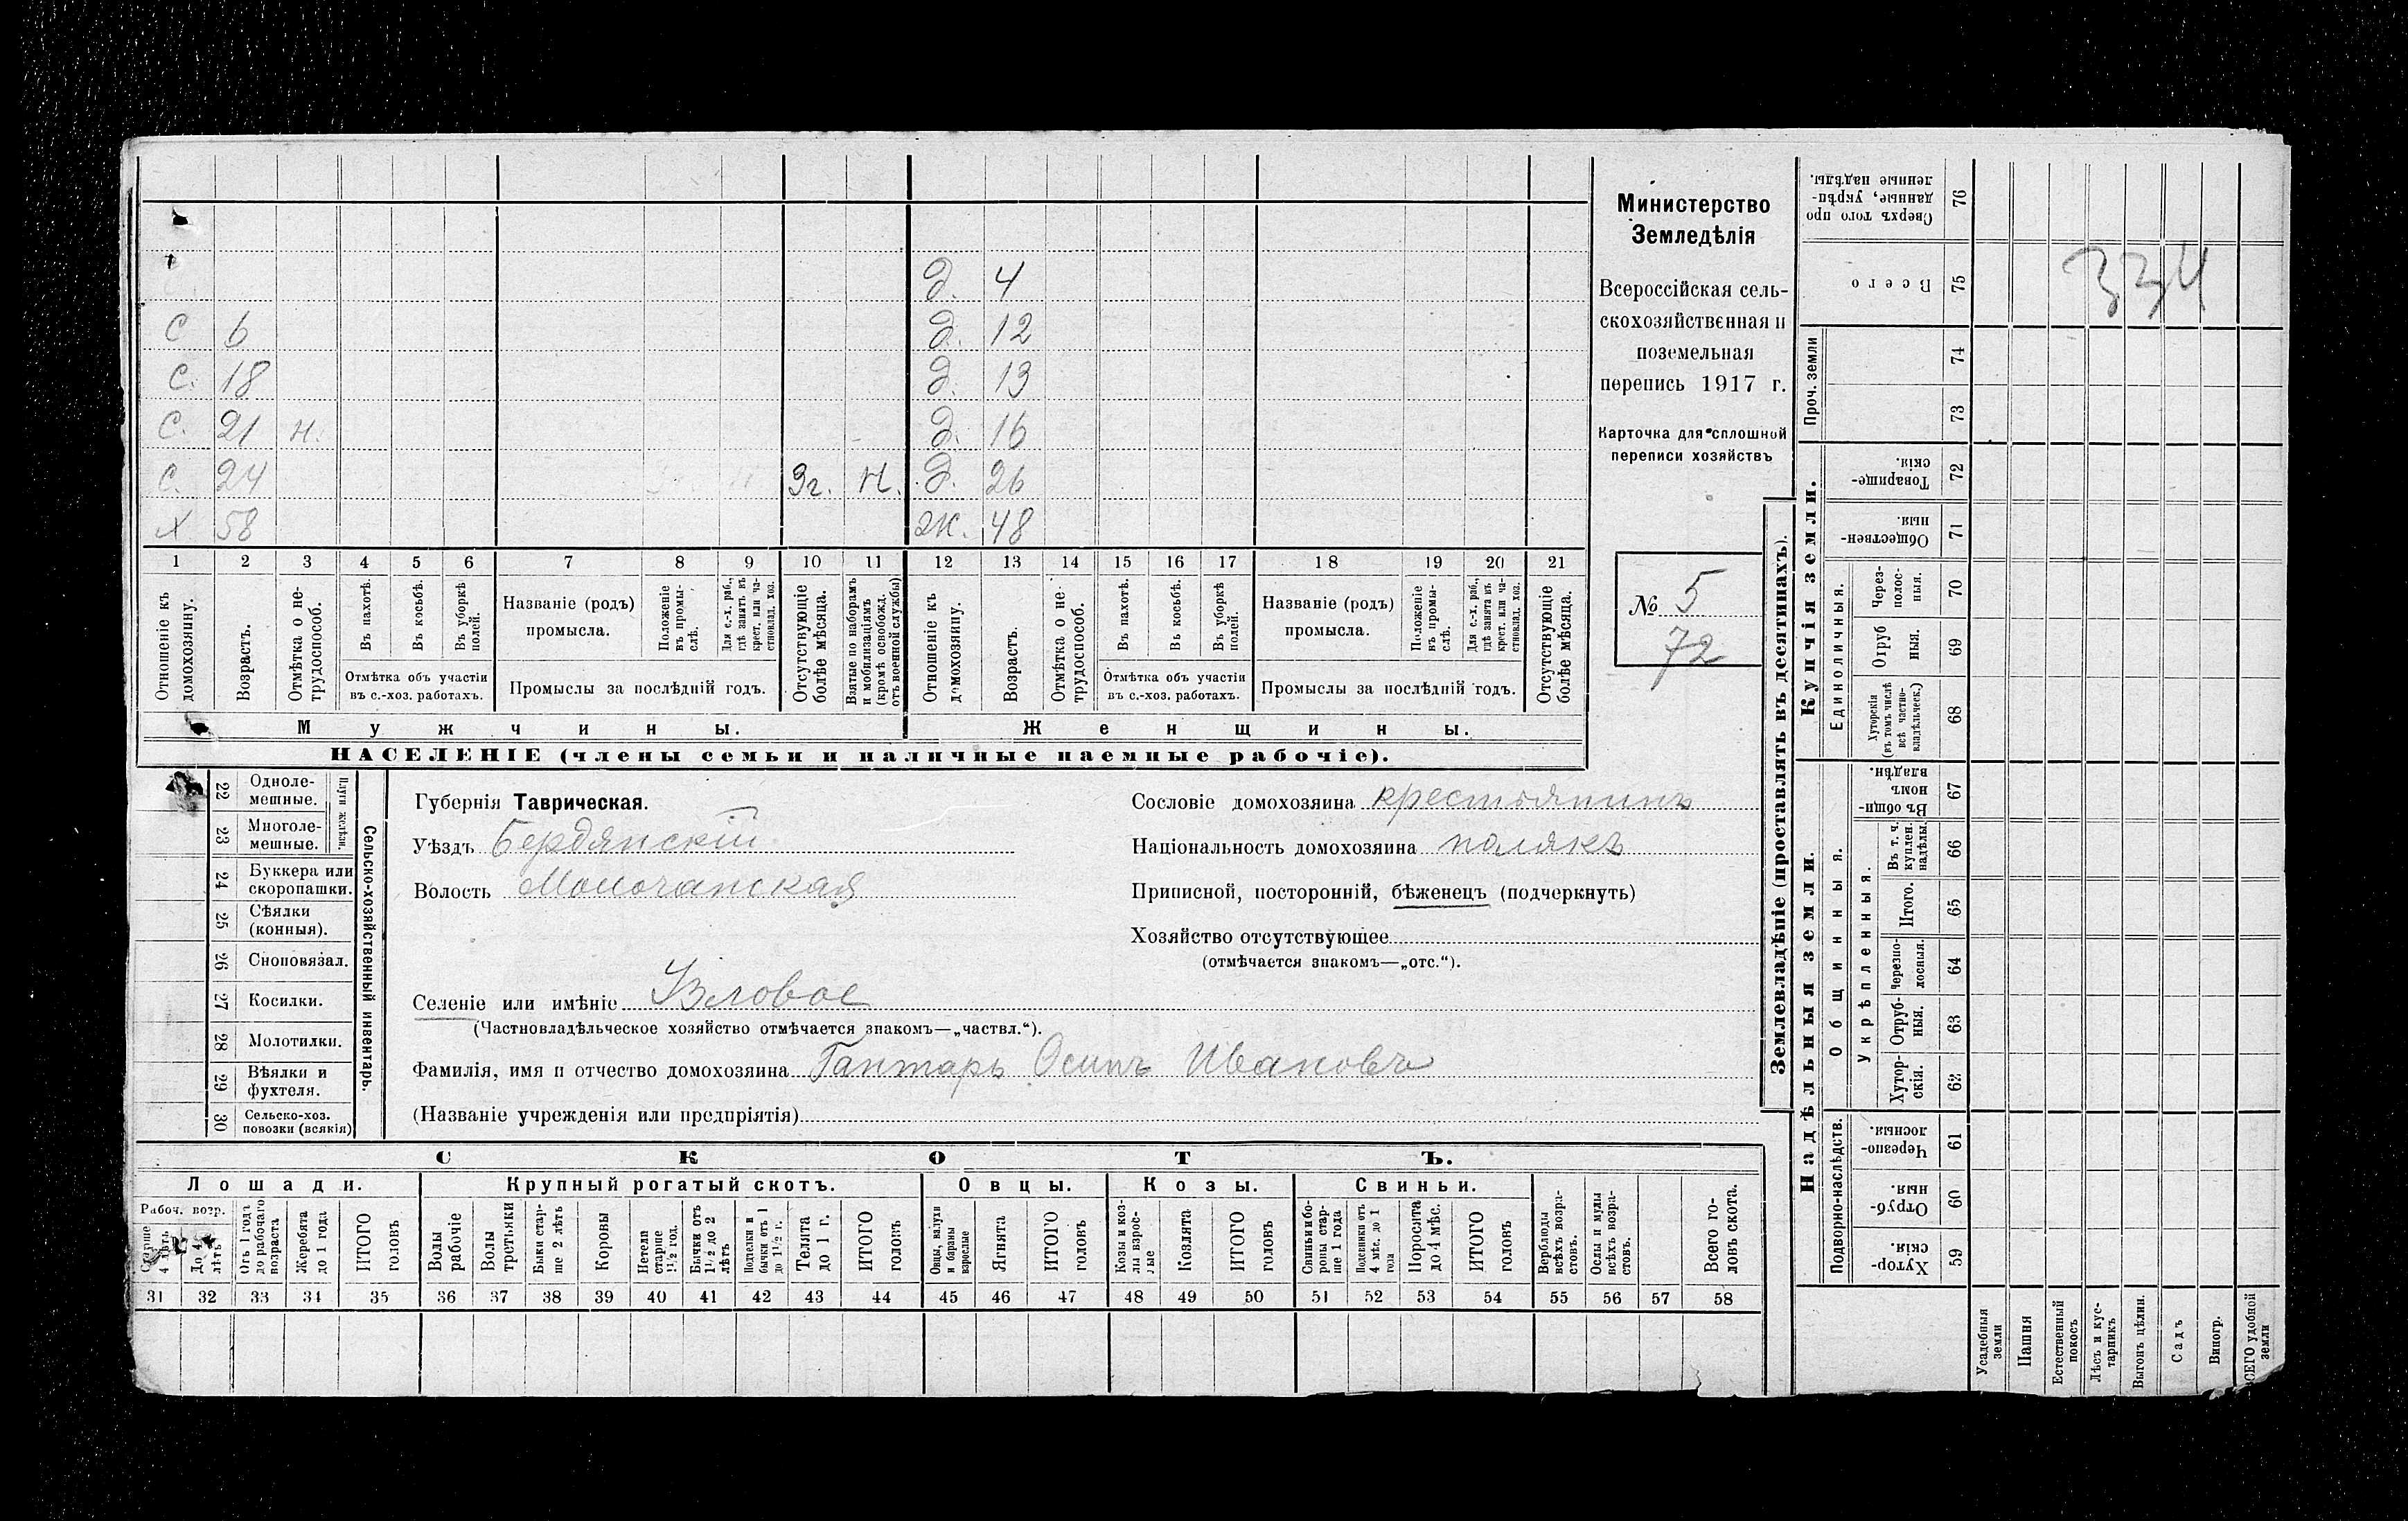 д. 4
С 6 д. 12
С. 18 д. 13
С. 21 н. д. 16
С. 24 3г. н. д. 26
Х 58 ж. 48
1 2 3 4 5 6 7 8 9 10 11 12 13 14 15 16 17 18 19 20 21
Отношеніе къ домохозяину.
Возрастъ.
Отмѣтка о не-
трудоспособ.
Въ пахотѣ.
Въ косьбѣ.
Въ уборкѣ
полей.
Отмѣтка объ участіи
въ с.-хоз. работахъ.
Названіе (родъ)
промысла.
Положеніе
въ промы-
слѣ.
Для с.-х. раб.,
гдѣ занятъ въ
крест. или ча-
стновлад. хоз.
Промыслы за послѣдній годъ.
Отсутствующіе
болѣе мѣсяца.
Взятые по наборамъ
и мобилизаціямъ
(кромѣ освобожд.
отъ военной службы)
Отношеніе къ
домохозяину.
Возрастъ.
Отмѣтка о не-
трудоспособ.
Въ пахотѣ.
Въ косьбѣ.
Въ уборкѣ
полей.
Отмѣтка объ участіи
въ с.-хоз. работахъ.
Названіе (родъ)
промысла.
Положеніе
въ промы-
слѣ.
Для с.-х. раб.,
гдѣ занята въ
крест. или ча-
стновлад. хоз.
Промыслы за послѣдній годъ.
Отсутствующіе
болѣе мѣсяца.
Мужчины. Женщины.
НАСЕЛЕНІЕ (члены семьи и наличные наемные рабочіе).
Министерство
Земледѣлія
Всероссійская сель-
скохозяйственная и
поземельная
перепись 1917 г.
Карточка для сплошной
переписи хозяйствъ
№ 5
72
22 Одноле-
мешные.
23 Многоле-
мешные.
Плуги желѣзн.
24 Буккера или
скоропашки.
25 Сѣялки
(конныя).
26 Сноповязал.
27 Косилки.
28 Молотилки.
29 Вѣялки и
фухтеля.
30 Сельско-хоз.
повозки (всякія)
Сельско-хозяйственный инвентарь.
Губернія Таврическая.
Уѣздъ Бердянскій
Волость Молочанская
Селеніе или имѣніе Узловое
(Частновладѣльческое хозяйство отмѣчается знакомъ—„частвл.“).
Фамилія, имя и отчество домохозяина Гантарь Осипъ Ивановъ
(Названіе учрежденія или предпріятія)
Сословіе домохозяина крестьянинъ
Національность домохозяина полякъ
Приписной, посторонній, бѣженецъ (подчеркнуть)
Хозяйство отсутствующее
(отмѣчается знакомъ—„отс.“).
СКОТЪ.
Лошади. Крупный рогатый скотъ. Овцы. Козы. Свиньи.
Рабоч. возр.
Старше
4 лѣтъ
До 4
лѣтъ
Отъ 1 года
до рабочаго
возраста
Жеребята
до 1 года
ИТОГО
головъ
Волы
рабочіе
Волы
третьяки
Быки стар-
ше 2 лѣтъ
Коровы
Нетели
старше
1½ год.
Бычки отъ
1½ до 2
лѣтъ
Подтелки и
бычки отъ 1
до 1½ г.
Телята
до 1 г.
ИТОГО
головъ
Овцы, валухи
и бараны
взрослые
Ягнята
ИТОГО
головъ
Козы и коз-
лы взрос-
лые
Козлята
ИТОГО
головъ
Свиньи и бо-
ровы стар-
ше 1 года
Подсвинки отъ
4 мѣс. до 1
года
Поросята
до 4 мѣс.
ИТОГО
головъ
Верблюды
всѣхъ возра-
стовъ.
Ослы и мулы
всѣхъ возра-
стовъ.
Всего го-
ловъ скота.
31 32 33 34 35 36 37 38 39 40 41 42 43 44 45 46 47 48 49 50 51 52 53 54 55 56 57 58
Землевладѣніе (проставлять въ десятинахъ).
Надѣльныя земли. Купчія земли.
Проч. земли
Подворно-наслѣдств.
Общинныя.
Укрѣпленныя.
Единоличныя.
Сверхъ того про
данные, укрѣп-
ленные надѣлы. 76
Всего 75
334
74
73
Товарище-
скія. 72
Обществен-
ныя. 71
Через-
полос-
ныя. 70
Отруб
ныя. 69
Хуторскія
(въ томъ числѣ
всѣ частно-
владѣльческ.) 68
Въ общи-
номъ
владѣн. 67
Въ т. ч.
куплен.
надѣлы. 66
Итого. 65
Черезпо-
лосныя. 64
Отруб-
ныя. 63
Хутор-
скія. 62
Черезпо-
лосныя. 61
Отруб-
ныя. 60
Хутор-
скія. 59
Усадебныя
земли
Пашня
Естественный
покосъ
Лѣсъ и кус-
тарникъ
Выгонъ цѣлин.
Садъ
Виногр.
ВСЕГО удобной
земли